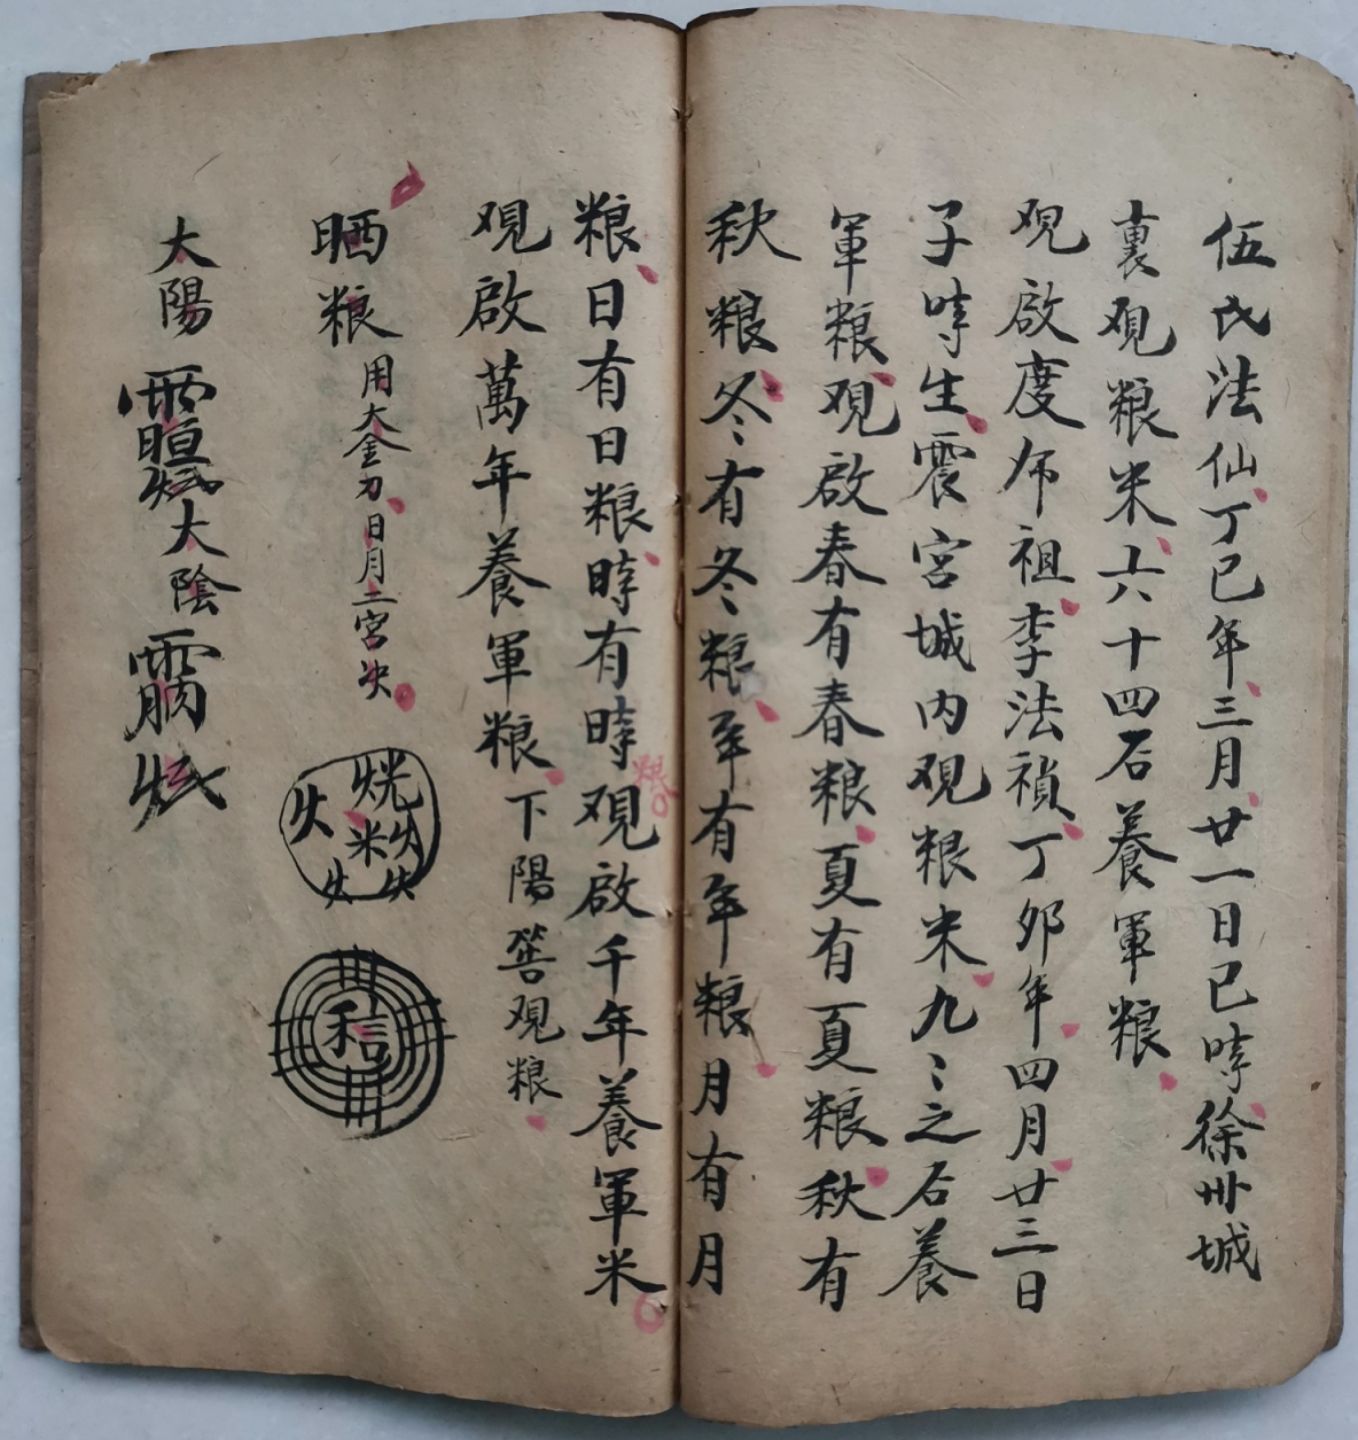 伍氏法仙丁巳年三月廿一日巳時徐州城
裏观粮米六十四石養軍粮
观啟度师祖李法禎丁卯年四月廿三日
子時生震宮城内观粮米九〻之石養
軍粮观啟春有春粮夏有夏粮秋有
秋粮冬〻有冬〻粮年有年粮月有月
粮日有日粮時有時粮观啟千年養軍米
观啟萬年養軍粮下陽筶观粮
晒粮用大金刀日月二宮决
米
信
太陽
大陰